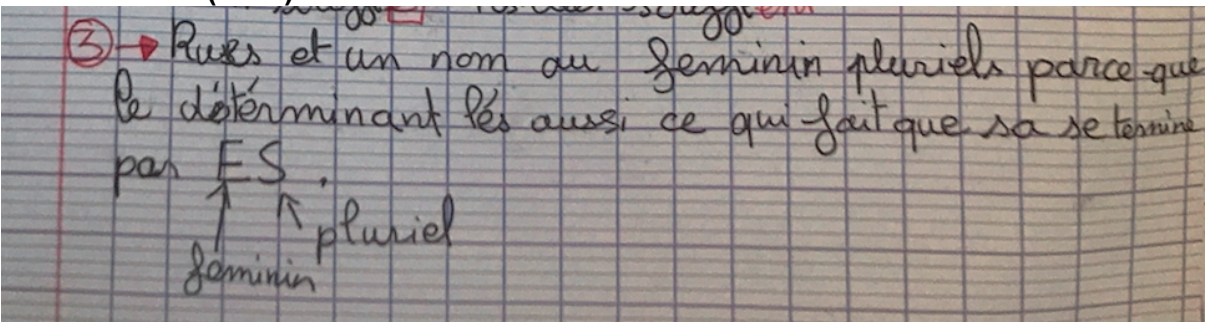 ③→ Rues et un nom au feminin pluriels parce-que
le détérminant lés aussi ce qui fait que sa se termine
par ES.
pluriel
feminin